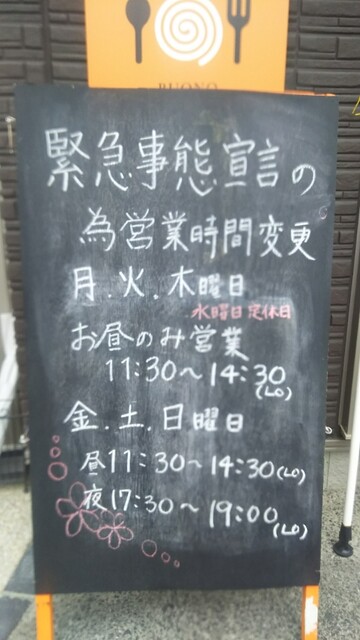 BUONO
緊急事態宣言の
為営業時間変更
月.火.木曜日
水曜日定休日
お昼のみ営業
11:30〜14:30
(LO)
金.土.日曜日
昼11:30〜14:30(LO)
夜17:30〜19:00
(LO)